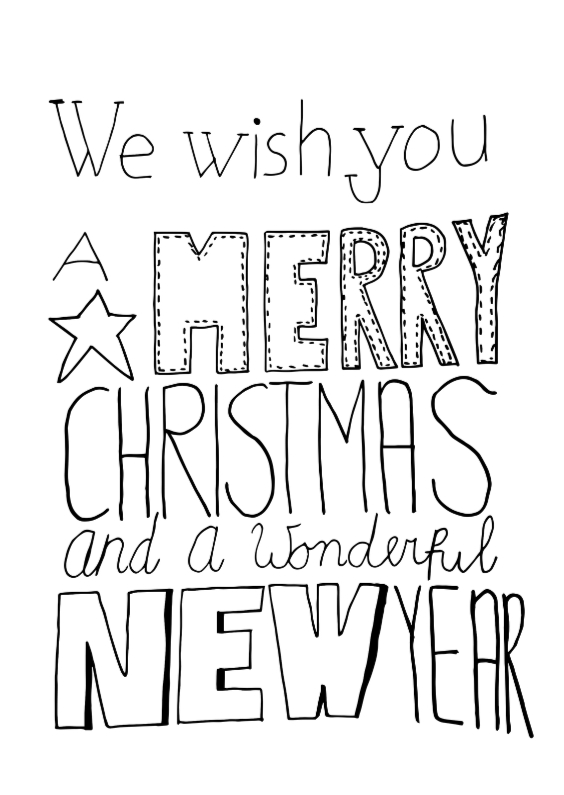 We wish you
A MERRY
CHRISTMAS
and a Wonderful
NEW YEAR